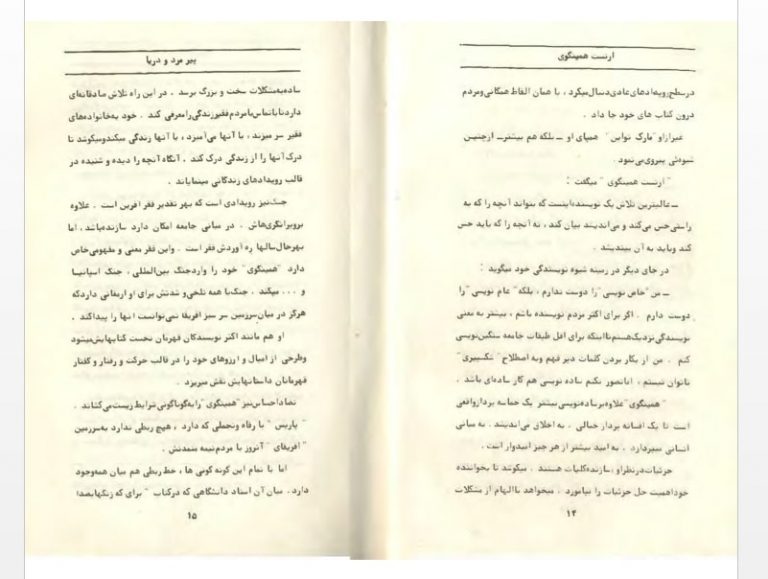 ارنست همینگوی
در سطح رویدادهای عادی دنبال میکرد ، با همان الفاظ همگانی و مردم
درون کتاب های خود جا داد .
غیر از او "مارک تواین" همپای او ــ بلکه هم بیشتر ــ از چنین
شیوه‌ئی پیروی می‌نمود .
"ارنست همینگوی" میگفت :
ــ عالیترین تلاش یک نویسنده اینست که بتواند آنچه را که به
راستی حس می‌کند و می‌اندیشد بیان کند ، نه آنچه را که باید حس
کند و باید به آن بیندیشد .
در جای دیگر در زمینه شیوه نویسندگی خود میگوید :
ــ من "خاص نویسی" را دوست ندارم ، بلکه "عام نویسی" را
دوست دارم . اگر برای اکثر مردم نویسنده باشم ، بیشتر به معنی
نویسندگی نزدیک هستم تا اینکه برای اقل طبقات جامعه سنگین‌نویسی
کنم . من از بکار بردن کلمات دیر فهم و به اصطلاح "تکسپیری"
ناتوان نیستم ، اما تصور نکنم ساده نویسی هم کار ساده‌ای باشد .
"همینگوی" علاوه بر ساده‌نویسی بیشتر یک حماسه پرداز واقعی
است تا یک افسانه پرداز خیالی . به اخلاق می‌اندیشد . به مبانی
انسانی میپردازد . به امید بیشتر از هر چیز امیدوار است .
جزئیات در نظر او ، سازنده کلیات هستند . میکوشد تا بخواننده
خود اهمیت حل جزئیات را بیاموزد . میخواهد با الهام از مشکلات
۱۴
پیر مرد و دریا
ساده به مشکلات سخت و بزرگ برسد . در این راه تلاش صادقانه‌ای
دارد تا با تماس با مردم فقیر زندگی را معرفی کند . خود به خانواده‌های
فقیر سر میزند ، با آنها می‌آمیزد ، با آنها زندگی میکند و میکوشد تا
درک آنها را از زندگی درک کند . آنگاه آنچه را دیده و شنیده در
قالب رویدادهای زندگانی مینمایاند .
جنگ نیز رویدادی است که بهر تقدیر فقر آفرین است . علاوه
بر ویرانگری‌هاش . در مبانی جامعه امکان دارد سازنده باشد ، اما
بهر حال سالها ره آوردش فقر است . و این فقر معنی و مفهومی خاص
دارد "همینگوی" خود را وارد جنگ بین‌المللی ، جنگ اسپانیا
و . . . میکند . جنگ با همه تلخی و شدتش برای او ارمغانی دارد که
هرگز در میان سرزمین سر سبز آفریقا نمی‌توانست آنها را پیدا کند .
او هم مانند اکثر نویسندگان قهرمان نخست کتابهایش میشود
و طرحی از امیال و آرزوهای خود را در قالب حرکت و رفتار و گفتار
قهرمانان داستانهایش نقش میریزد .
تضاد احساس نیز "همینگوی" را به گوناگونی شرایط زیست می‌کشاند .
"پاریس" با رفاه و تجملی که دارد ، هیچ ربطی ندارد به سرزمین
"افریقای" آنروز با مردم نیمه متمدنش .
اما با تمام این گونه گونی ها ، خط ربطی هم میان همه وجود
دارد . میان آن استاد دانشگاهی که در کتاب "برای که زنگها بصدا
۱۵